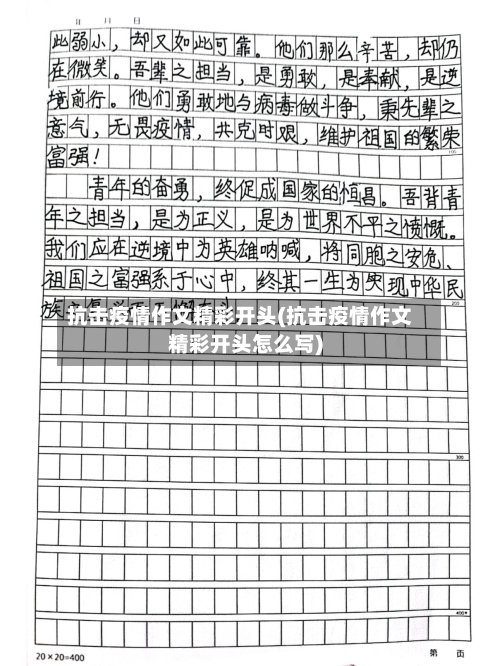 年 月 日
此弱小，却又如此可靠。他们那么辛苦，却仍
在微笑。吾辈之担当，是勇敢，是奉献，是逆
境前行。他们勇敢地与病毒做斗争，秉先辈之
意气，无畏疫情，共克时艰，维护祖国的繁荣
富强！
100
青年的奋勇，终促成国家的恒昌。吾背青
年之担当，是为正义，是为世界不平之愤慨。
我们应在逆境中为英雄呐喊，将同胞之安危、
祖国之富强系于心中，终其一生为实现中华民
族
200
抗击疫情作文精彩开头(抗击疫情作文
精彩开头怎么写)
300
400
20×20=400 第 页